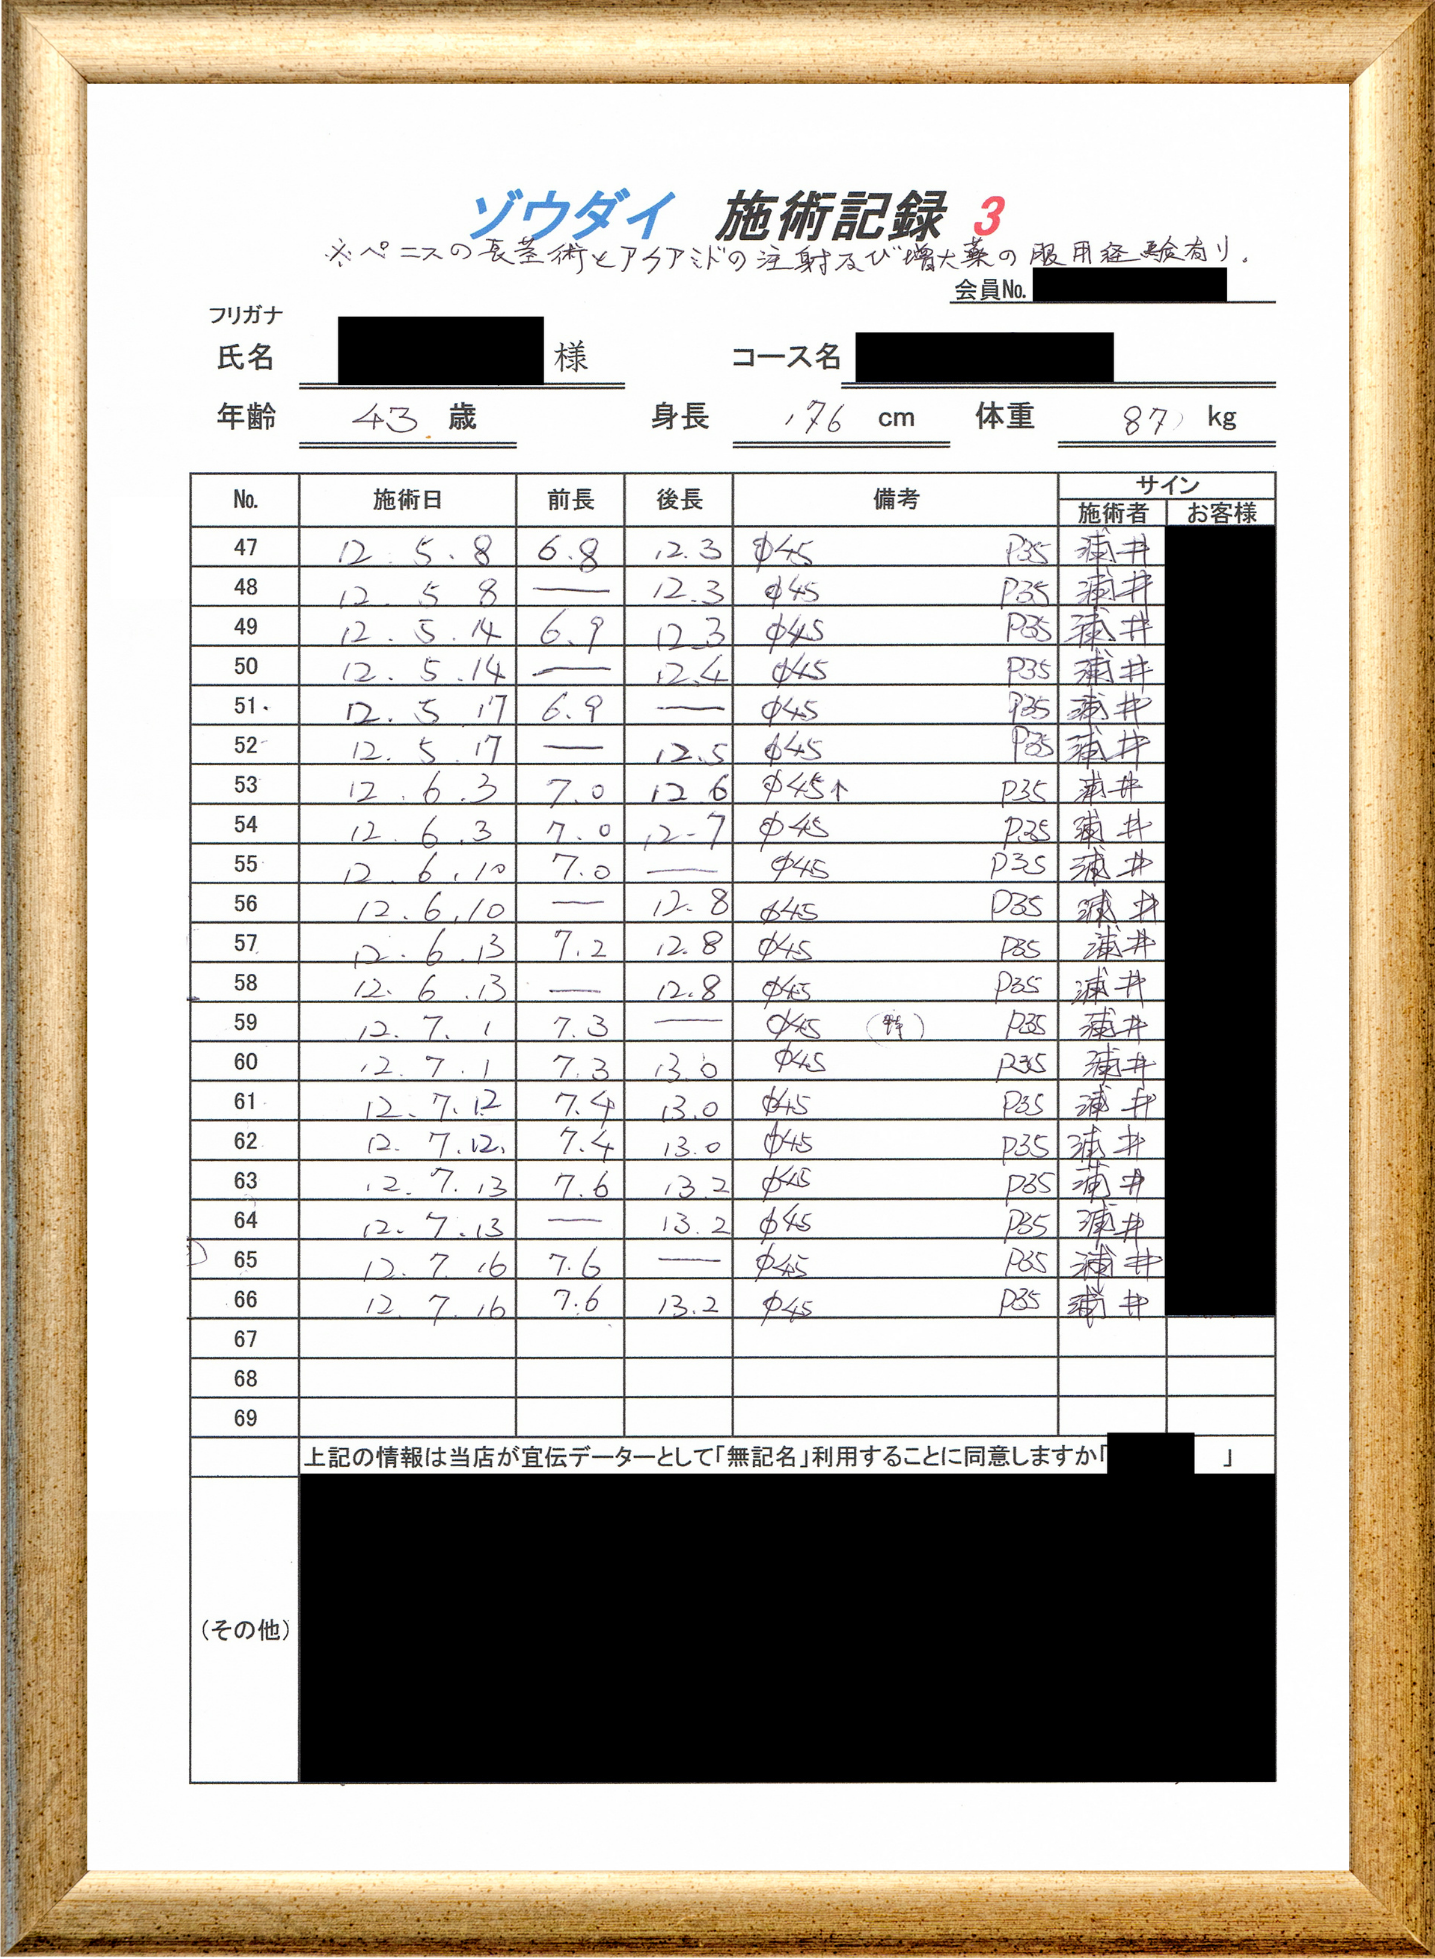 ゾウダイ 施術記録 3
※ペニスの長茎術とアクアミドの注射及び増大薬の服用経験有り.
会員No.
フリガナ
氏名 様 コース名
年齢 43 歳 身長 176 cm 体重 87 kg
No. 施術日 前長 後長 備考 サイン
施術者 お客様
47 12.5.8 6.8 12.3 φ45 P35 浦井
48 12.5 8 — 12.3 φ45 P35 浦井
49 12.5.14 6.9 12.3 φ45 P35 浦井
50 12.5.14 — 12.4 φ45 P35 浦井
51 12.5 17 6.9 — φ45 P35 浦井
52 12.5.17 — 12.5 φ45 P35 浦井
53 12.6.3 7.0 12.6 φ45↑ P35 浦井
54 12.6.3 7.0 12.7 φ45 P35 浦井
55 12.6.10 7.0 — φ45 P35 浦井
56 12.6.10 — 12.8 φ45 P35 浦井
57 12.6.13 7.2 12.8 φ45 P35 浦井
58 12.6.13 — 12.8 φ45 P35 浦井
59 12.7.1 7.3 — φ45 (特) P35 浦井
60 12.7.1 7.3 13.0 φ45 P35 浦井
61 12.7.12 7.4 13.0 φ45 P35 浦井
62 12.7.12. 7.4 13.0 φ45 P35 浦井
63 12.7.13 7.6 13.2 φ45 P35 浦井
64 12.7.13 — 13.2 φ45 P35 浦井
65 12.7.16 7.6 — φ45 P35 浦井
66 12.7.16 7.6 13.2 φ45 P35 浦井
67
68
69
上記の情報は当店が宣伝データーとして「無記名」利用することに同意しますか「 」
(その他)